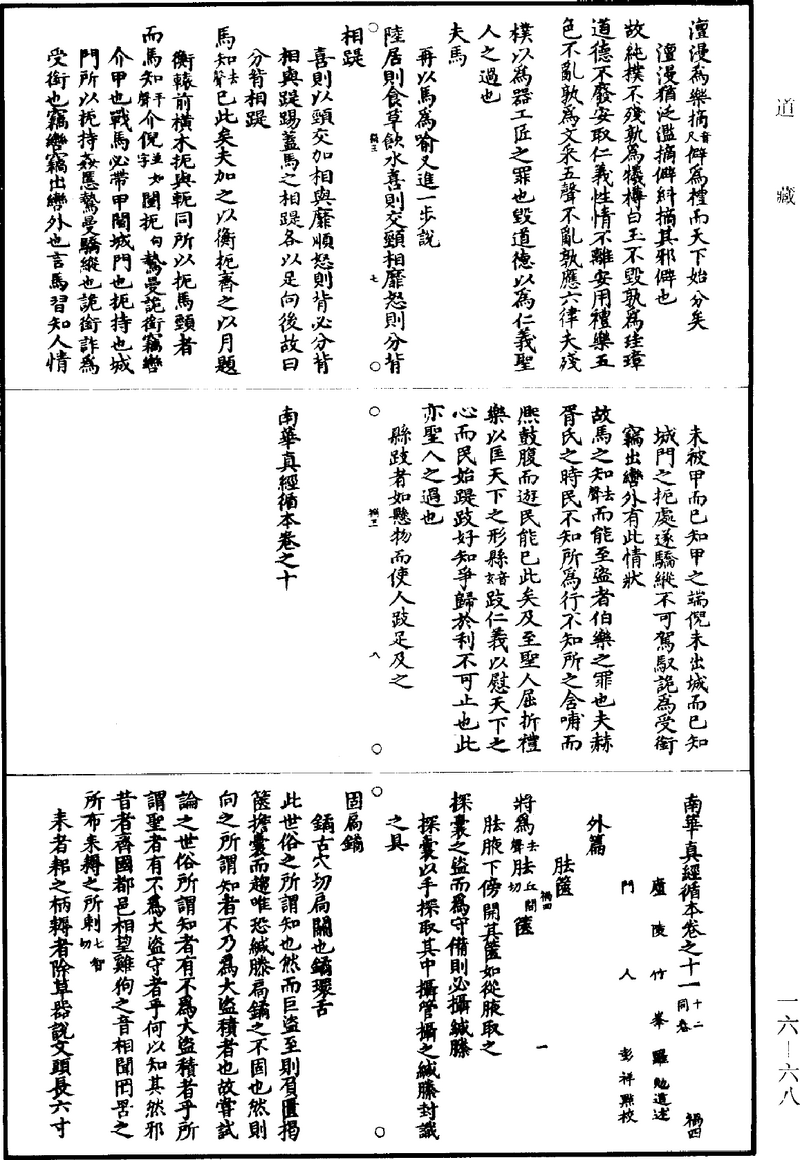 道藏
澶漫爲樂摘音尺僻爲禮而天下始分矣
澶漫猶泛濫摘僻糾摘其邪僻也
故純樸不殘孰爲犧樽白玉不毀孰爲珪璋
道德不廢安取仁義性情不離安用禮樂五
色不亂孰爲文采五聲不亂孰應六律夫殘
樸以爲器工匠之罪也毀道德以爲仁義聖
人之過也
夫馬
再以馬爲喻又進一步說
陸居則食草飲水喜則交頸相靡怒則分背
禍三 七
相踶
喜則以頸交加相與靡順怒則背必分背
相與踶踢蓋馬之相踶各以足向後故曰
分背相踶
馬知去聲已此矣夫加之以衡扼齊之以月題
衡轅前橫木扼與軛同所以扼馬頸者
而馬知平聲介倪字並如闉扼句鷙曼詭銜竊轡
介甲也戰馬必帶甲闉城門也扼持也城
門所以扼持姦慝鷙曼驕縱也詭銜詐爲
受銜也竊轡竊出轡外也言馬習知人情
未被甲而已知甲之端倪未出城而已知
城門之扼處遂驕縱不可駕馭詭爲受銜
竊出轡外有此情狀
故馬之知去聲而能至盜者伯樂之罪也夫赫
胥氏之時民不知所爲行不知所之含哺而
熙鼓腹而遊民能已此矣及至聖人屈折禮
樂以匡天下之形縣音玄跂仁義以慰天下之
心而民始踶跂好知爭歸於利不可止也此
亦聖人之過也
縣跂者如懸物而使人跂足及之
禍三 八
南華真經循本卷之十
南華真經循本卷之十一十二同卷 禍四
廬陵竹峯羅勉道述
門人彭祥點校
外篇
胠篋
將爲去聲胠丘間切篋
禍四 一
胠腋下傍開其篋如從腋取之
探囊之盜而爲守備則必攝緘縢
探囊以手探取其中攝管攝之緘縢封識
之具
固扃鐍
鐍古穴切扃關也鐍環舌
此世俗之所謂知也然而巨盜至則負匱揭
篋擔囊而趨唯恐緘縢扃鐍之不固也然則
向之所謂知者不乃爲大盜積者也故嘗試
論之世俗所謂知者有不爲大盜積者乎所
謂聖者有不爲大盜守者乎何以知其然邪
昔者齊國鄰邑相望雞狗之音相聞罔罟之
所布耒耨之所刺七智切
耒者耜之柄耨者除草器說文頭長六寸
一六—六八